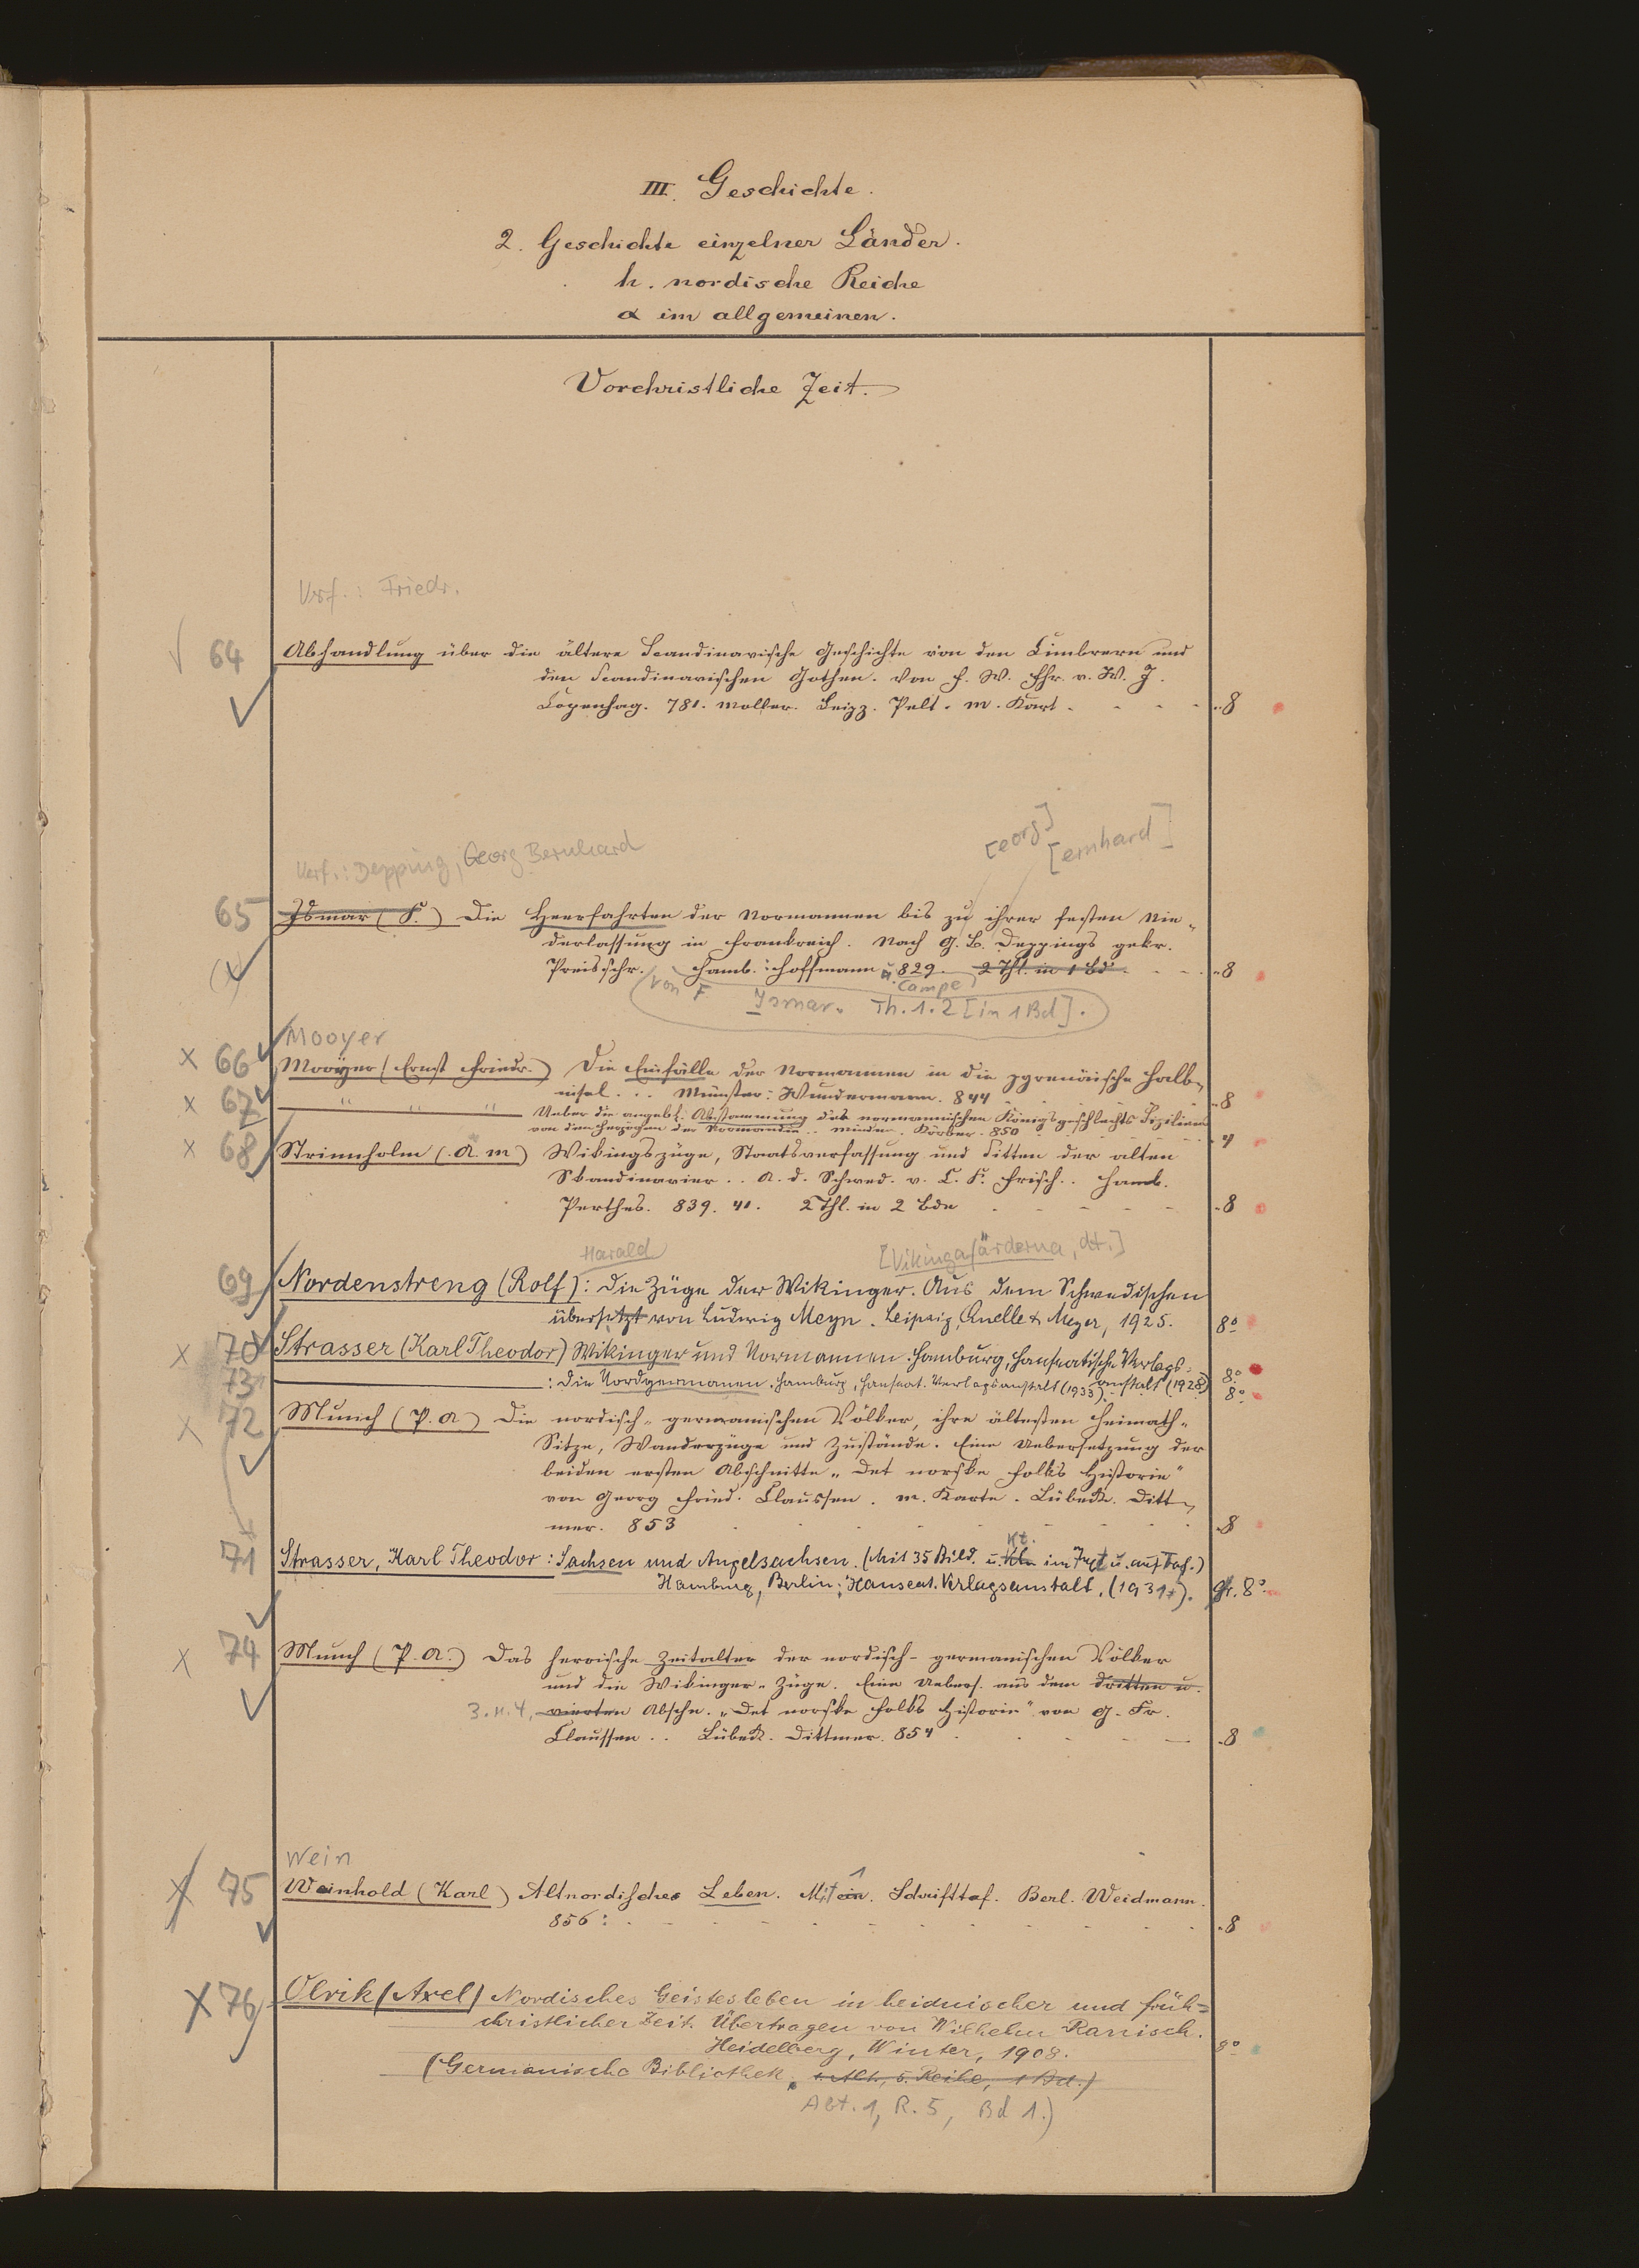 III. Geschichte.
2. Geschichte einzelner Länder.
h. nordische Reiche
α im allgemeinen.
Vorchristliche Zeit.
Verf.: Friedr.
64 Abhandlung über die ältere Scandinavische Geschichte von den Cimbrern und
den Scandinavischen Gothen. Von F. W. Fhr. v. W. J.
Copenhag. 781. Moller. Leipz. Pelt. m. Kart. 8
[eorg]
[ernhard]
Verf.: Depping, Georg Bernhard
65 Ismar (F.) Die Heerfahrten der Normannen bis zu ihrer festen Nie-
derlassung in Frankreich. Nach G. B. Deppings gekr.
Preisschr. Hamb.: Hoffmann u. 829. 2 Thl. in 1 Bd. 8
Campe
von F. Ismar. Th. 1.2 [in 1 Bd].
Mooyer
66 Mooyer (Ernst Friedr.) Die Einfälle der Normannen in die pyrenäische Halb-
insel... Münster: Wundermann. 844 8
67 " " " Ueber die angebl. Abstammung des normannischen Königsgeschlechts Siziliens
von den Herzögen der Normandie.. Minden. Körber. 850 4
68 Strinnholm (A. M) Wikingszüge, Staatsverfassung und Sitten der alten
Skandinavier.. A. d. Schwed. v. C. F. Frisch.. Hamb.
Perthes. 839. 41. 2 Thl. in 2 Bde 8
Harald [Vikingafärderna, dt.]
69 Nordenstreng (Rolf): Die Züge der Wikinger. Aus dem Schwedischen
übersetzt von Ludwig Meyn. Leipzig, Quelle & Meyer, 1925. 8°
70 Strasser (Karl Theodor) Wikinger und Normannen. Hamburg, Hanseatische Verlags-
anstalt (1928) 8°
73 : Die Nordgermanen. Hamburg, Hanseat. Verlagsanstalt (1933). 8°
72 Munch (P. A) Die nordisch-germanischen Völker, ihre ältesten Heimath-
Sitze, Wanderzüge und Zustände. Eine Uebersetzung der
beiden ersten Abschnitte „Det norske Folks Historie"
von Georg Fried. Claussen. m. Karte. Lübeck. Ditt-
mer. 853 8
Kt.
71 Strasser, Karl Theodor: Sachsen und Angelsachsen. (Mit 35 Bild. u. Ktn im Text u. auf Taf.)
Hamburg, Berlin: Hanseat. Verlagsanstalt. (1931). gr. 8°
74 Munch (P. A.) Das heroische Zeitalter der nordisch-germanischen Völker
und die Wikinger-Züge. Eine Uebers. aus dem dritten u.
3. u. 4. vierten Abschn. „Det norske Folks Historie" von G. Fr.
Claussen.. Lübeck. Dittmer. 854 8
Wein
75 Weinhold (Karl) Altnordisches Leben. Mit ein. Schrifttaf. Berl. Weidmann.
1
856. 8
76 Olrik (Axel) Nordisches Geistesleben in heidnischer und früh=
christlicher Zeit. Übertragen von Wilhelm Ranisch.
Heidelberg, Winter, 1908. 8°
(Germanische Bibliothek, 1. Abt., 5. Reihe, 1 Bd.)
Abt. 1, R. 5, Bd 1.)